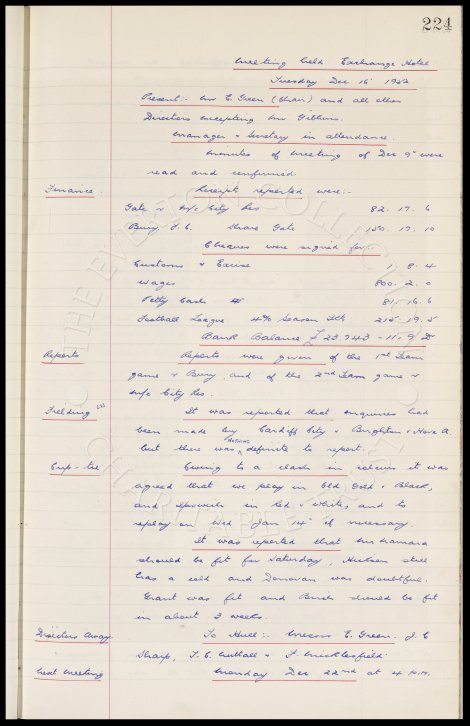 224
Meeting held Exchange Hotel
Tuesday Dec 16 1952
Present:- Mr E. Green (Chair) and all other
Directors excepting Mr Gibbins.
Manager & Secretary in attendance.
Minutes of Meeting of Dec 9th were
read and confirmed.
Finance. Receipts reported were:-
Gate v M/c City Res 82. 17. 6
Bury F.C. Share Gate 150. 17. 10
Cheques were signed for:-
Customs & Excise 1. 8. 4
Wages 800. 2. 0
Petty Cash 81. 16. 6
Football League 4% Season Tkts 215. 19. 5
Bank Balance £23743-11-9
Reports Reports were given of the 1st Team
game v Bury, and of the 2nd Team game v
M/c City Res.
Fielding It was reported that enquiries had
been made by Cardiff City & Brighton & Hove A.
but there was nothing definite to report.
Cup-tie Owing to a clash in colours it was
agreed that we play in Old Gold & Black,
and Ipswich in Red & White, and to
replay on Wed Jan 14th if necessary.
It was reported that McNamara
should be fit for Saturday, Hickson still
has a cold and Donovan was doubtful.
Grant was fit and Buckle should be fit
in about 3 weeks.
Directors Away. To Hull:- Messrs E. Green. J. C
Sharp, T. C. Nuttall & F. Micklesfield
Next Meeting Monday Dec 22nd at 4 P.M.
THE EVERTON COLLECTION
CHARITABLE TRUST